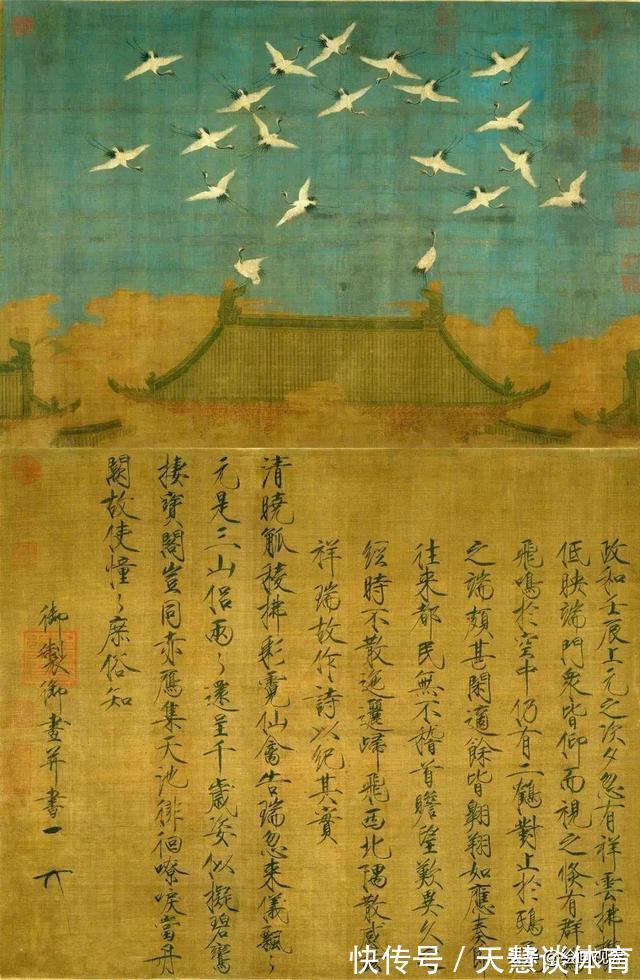 政和壬辰上元之次夕忽有祥雲拂
低映端門衆皆仰而視之倏有群
飛鳴於空中仍有二鶴對止於鴟
之端頗甚閑適餘皆翱翔如應奏節
往來都民無不稽首瞻望歎異久
經時不散迤邐歸飛西北隅散感
祥瑞故作詩以紀其實
清曉觚稜拂彩霓仙禽告瑞忽來儀飄〻
元是三山侶兩〻還呈千歲姿似擬碧鸞
棲寶閣豈同赤鴈集天池徘徊嘹唳當丹
闕故使憧〻庶俗知
御製御畫并書
快传号 / 天慧谈体育